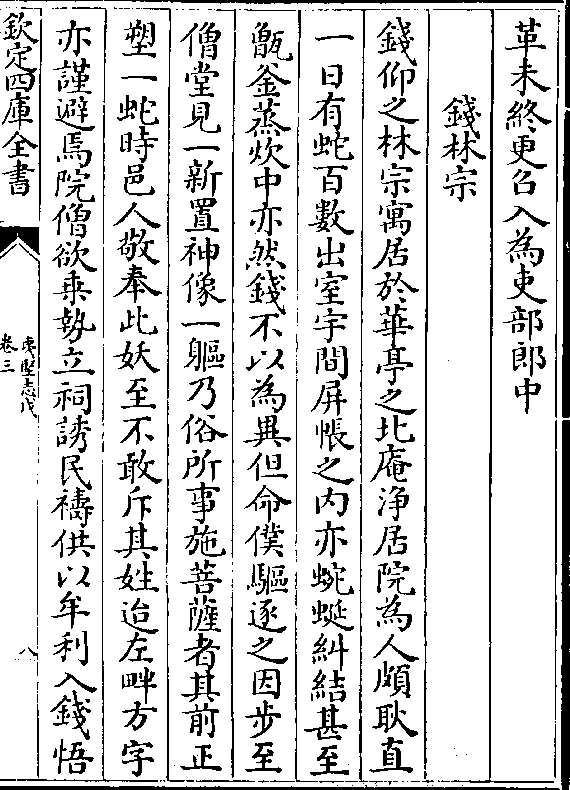 革未終更召入為吏部郎中
錢林宗
錢仰之林宗寓居於華亭之北庵淨居院為人頗耿直
一日有蛇百數出室宇間屏帳之内亦蜿蜒糾結甚至
甑釜蒸炊中亦然錢不以為異但命僕驅逐之因步至
僧堂見一新置神像一軀乃俗所事施菩薩者其前正
塑一蛇時邑人敬奉此妖至不敢斥其姓迨左畔方字
亦謹避焉院僧欲乗勢立祠誘民禱供以牟利入錢悟
欽定四庫全書
夷堅志戊
卷三
八